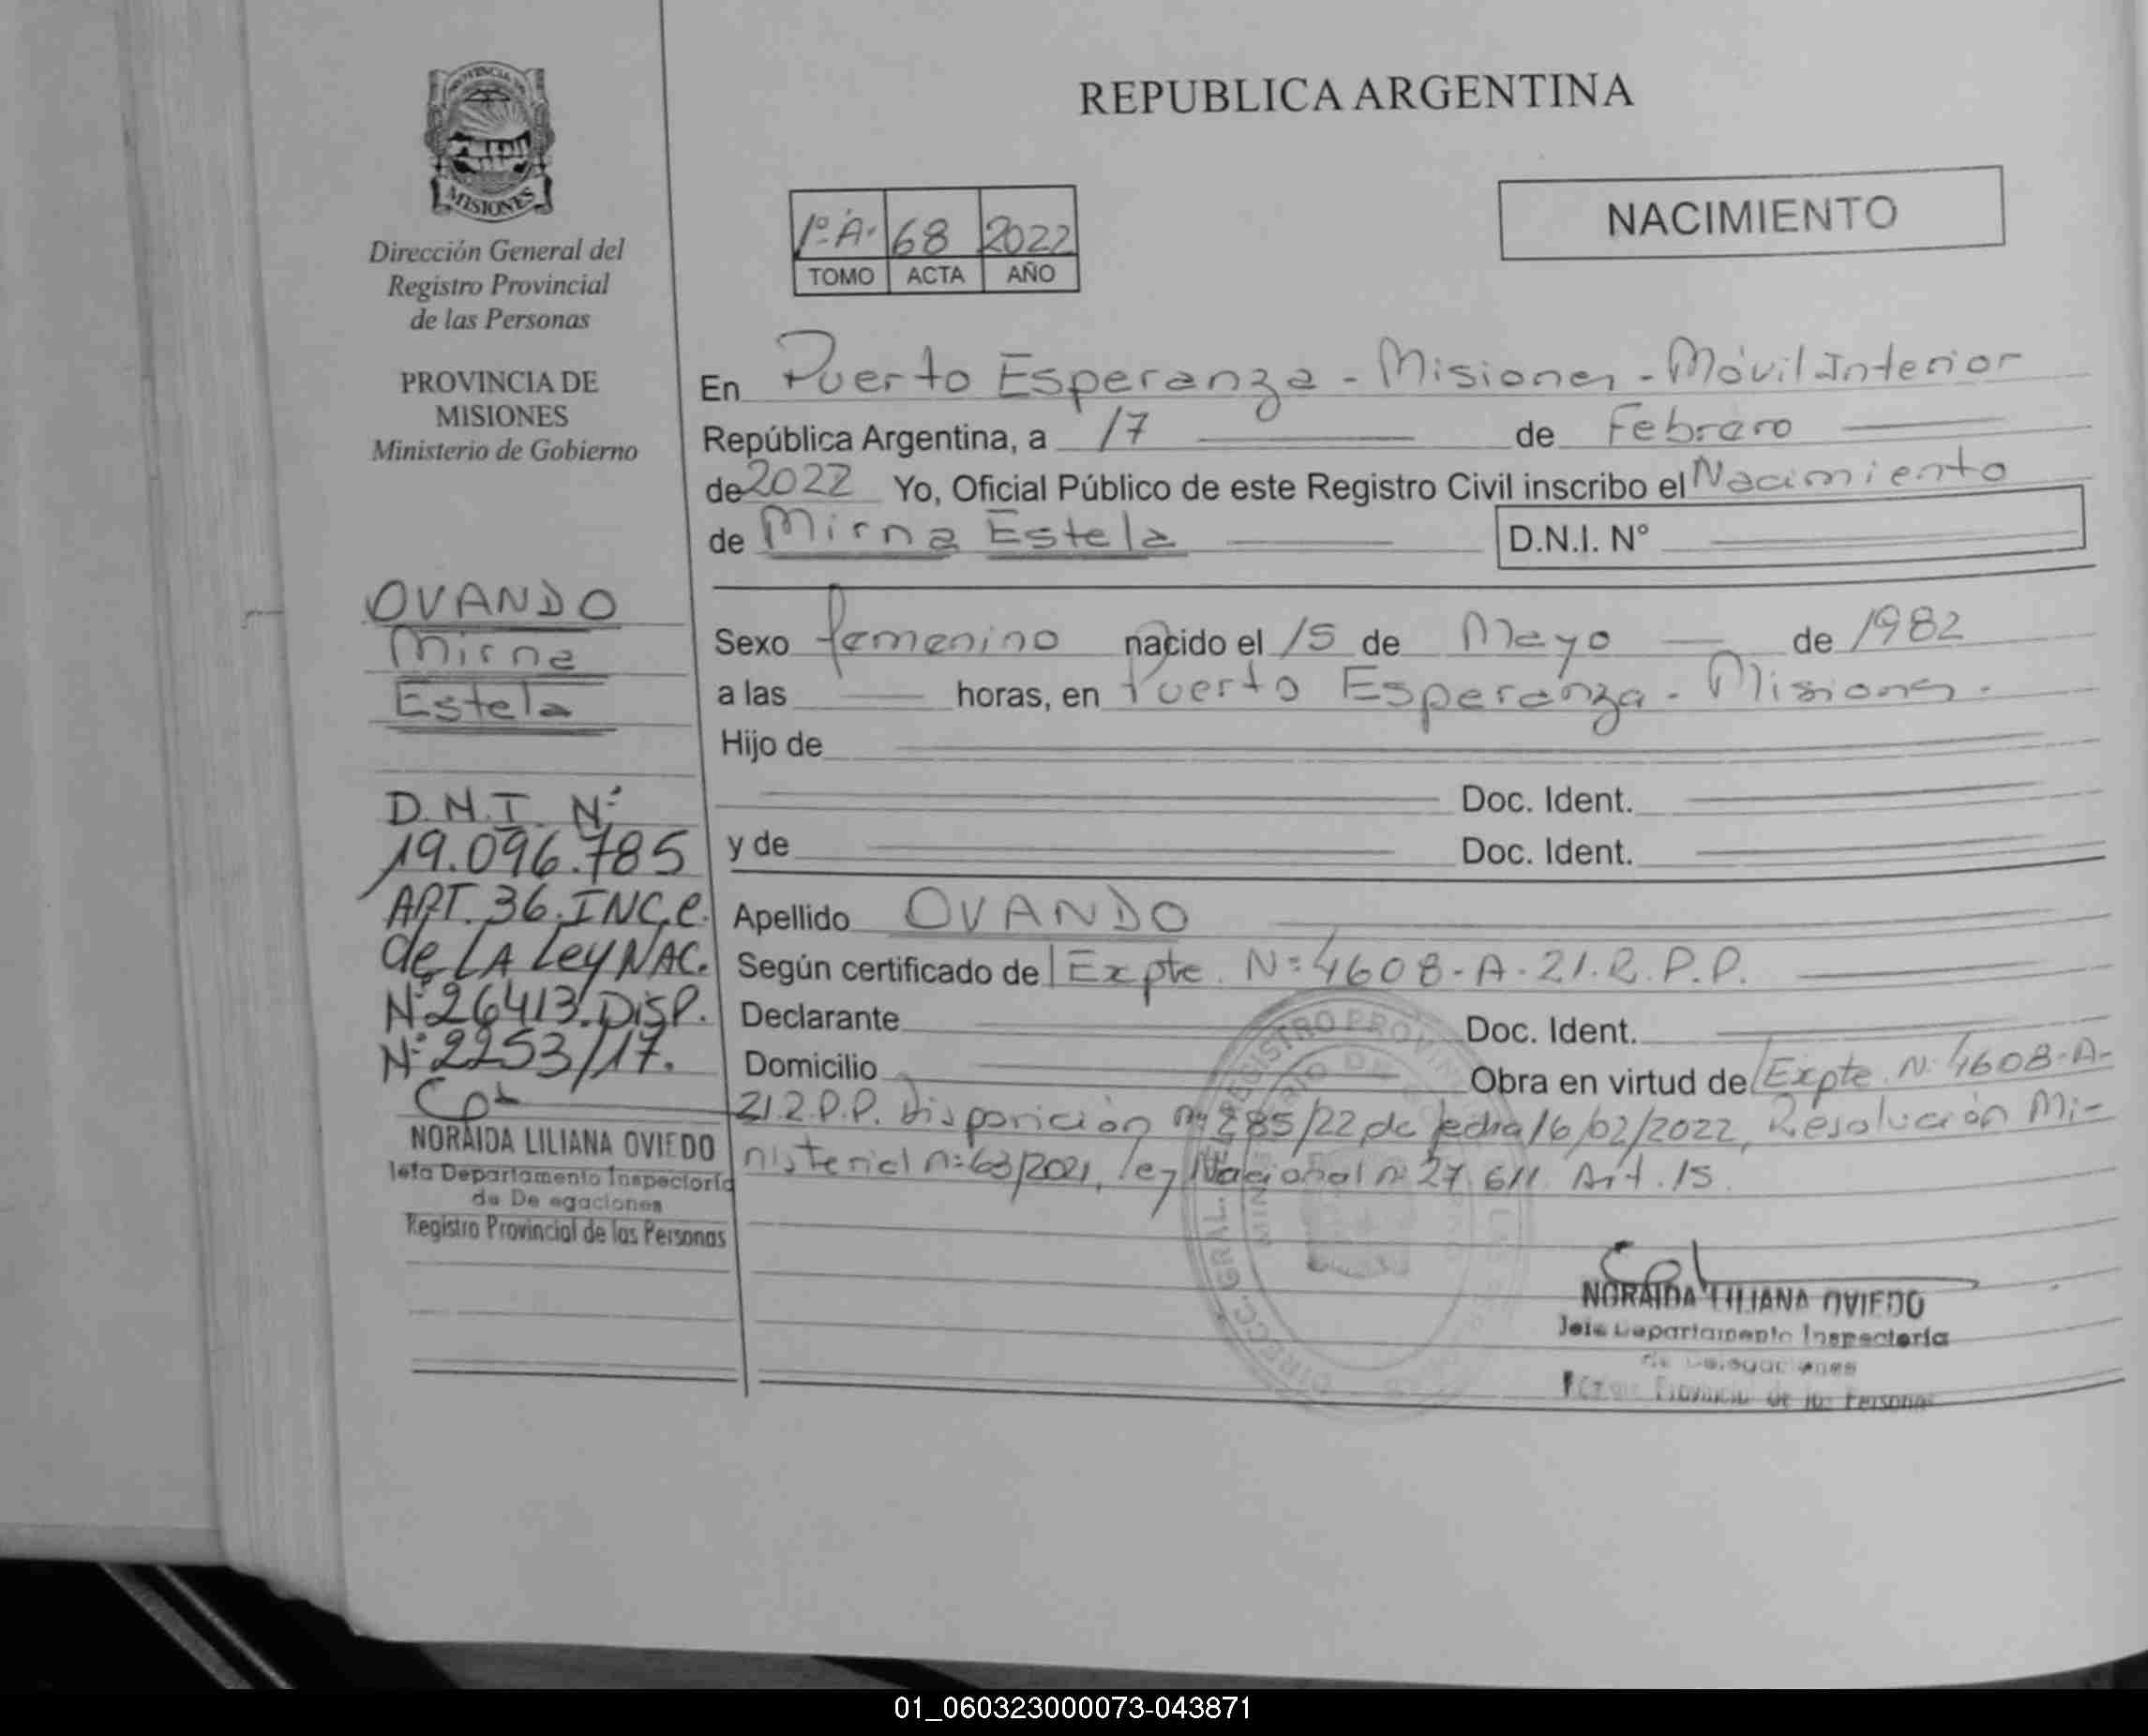 PROVINCIA
MISIONES
Dirección General del
Registro Provincial
de las Personas
PROVINCIA DE
MISIONES
Ministerio de Gobierno
OVANDO
Mirna
Estela
D.N.I. Nº
19.096.785
ART. 36. INC. e.
de LA Ley NAC.
Nº 26413. DISP.
Nº 2253/17.
NORAIDA LILIANA OVIEDO
Jefa Departamento Inspectoria
de De egaciones
Registro Provincial de las Personas
REPUBLICA ARGENTINA
1º A. 68 2022
TOMO ACTA AÑO
NACIMIENTO
En Puerto Esperanza - Misiones - Móvil Interior
República Argentina, a 17 de Febrero
de 2022 Yo, Oficial Público de este Registro Civil inscribo el Nacimiento
de Mirna Estela D.N.I. N°
Sexo femenino nacido el 15 de Mayo de 1982
a las horas, en Puerto Esperanza - Misiones.
Hijo de
Doc. Ident.
y de Doc. Ident.
Apellido OVANDO
Según certificado de Expte. Nº 4608-A-21.R.P.P.
Declarante Doc. Ident.
Domicilio Obra en virtud de Expte. Nº 4608-A-
21 R.P.P. Disposición nº 285/22 de fecha 16/02/2022, Resolución Mi-
nisterial nº 63/2021, ley Nacional nº 27.611. Art. 15.
NORAIDA LILIANA OVIEDO
Jefa Departamento Inspectoria
de Delegaciones
Provincial de las Personas
01_060323000073-043871